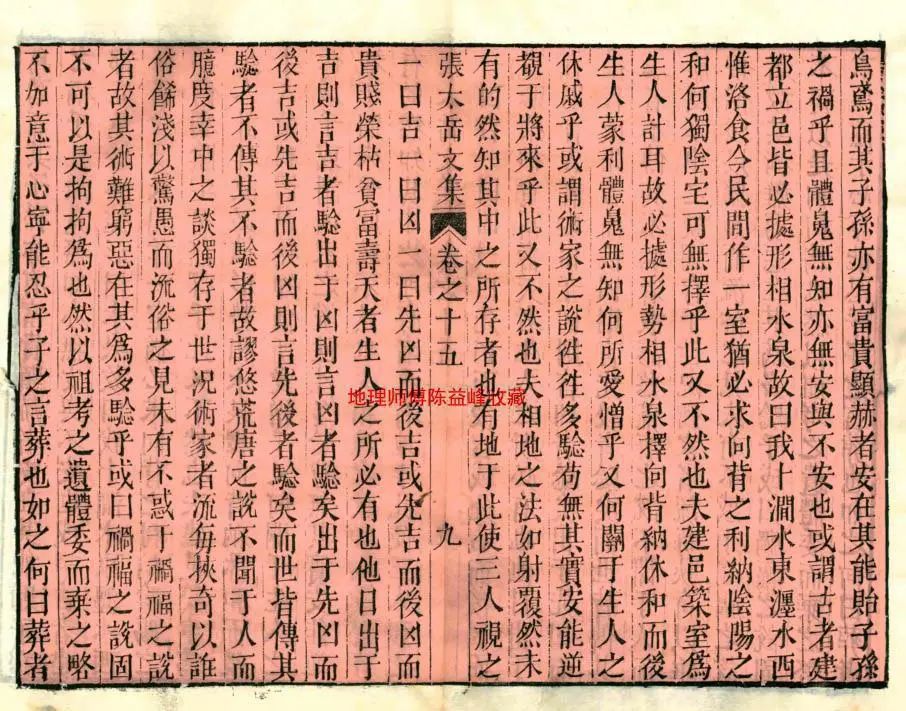 烏鳶而其子孫亦有富貴顯赫者安在其能貽子孫
之禍乎且體鬼無知亦無安與不安也或謂古者建
都立邑皆必㨿形相水泉故曰我卜澗水東瀍水西
惟洛食今民間作一室猶必求向背之利納陰陽之
和何獨陰宅可無擇乎此又不然也夫建邑築室爲
生人計耳故必㨿形勢相水泉擇向背納休和而後
生人蒙利體鬼無知何所愛憎乎又何關于生人之
休戚乎或謂術家之說徃徃多騐苟無其實安能逆
覩于將來乎此又不然也夫相地之法如射覆然未
有的然知其中之所存者也今有地于此使三人視之
張太岳文集 卷之十五 九
一曰吉一曰凶一曰先凶而後吉或先吉而後凶而
貴賤榮枯貧富壽夭者生人之所必有也他日出于
吉則言吉者騐出于凶則言凶者騐矣出于先凶而
後吉或先吉而後凶則言先後者騐矣而世皆傳其
騐者不傳其不騐者故謬悠荒唐之說不聞于人而
臆度幸中之談獨存于世況術家者流每挾奇以誑
俗餙淺以驚愚而流俗之見未有不惑于禍福之說
者故其術難窮惡在其爲多騐乎或曰禍福之說固
不可以是拘拘爲也然以祖考之遺體委而棄之略
不如意于心寧能忍乎子之言葬也如之何曰葬者
地理师傅陈益峰收藏